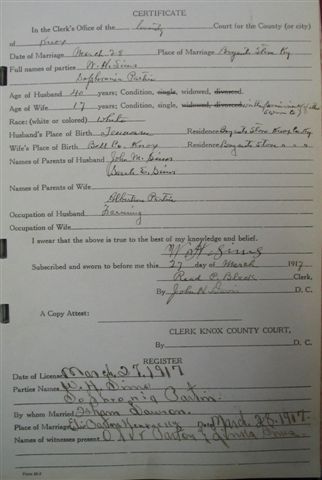 CERTIFICATE
In the Clerk's Office of the County Court for the County (or city)
of Knox
Date of Marriage March 28 Place of Marriage Bryants Store Ky
Full names of parties W. H. Sims
Sophronia Partin
Age of Husband 40 years; Condition, single, widowed, divorced.
Age of Wife 17 years; Condition, single, widowed, divorced.
Race: (white or colored) White
Husband's Place of Birth Tennessee Residence Bryants Store Knox Co Ky
Wife's Place of Birth Bell Co. Knox Residence Bryants Store
Names of Parents of Husband John M. Sims
Sims
Names of Parents of Wife
Partin
Occupation of Husband Farming
Occupation of Wife
I swear that the above is true to the best of my knowledge and belief.
W. H. Sims
Subscribed and sworn to before me this 27 day of March 1917
Read P. Black Clerk,
By John H. Davis D. C.
A Copy Attest:
CLERK KNOX COUNTY COURT,
By D. C.
REGISTER
Date of License March 27, 1917
Parties Names W. H. Sims
Sophronia Partin
By whom Married Isham Lawson
Place of Marriage Eli March 28-1917
Names of witnesses present